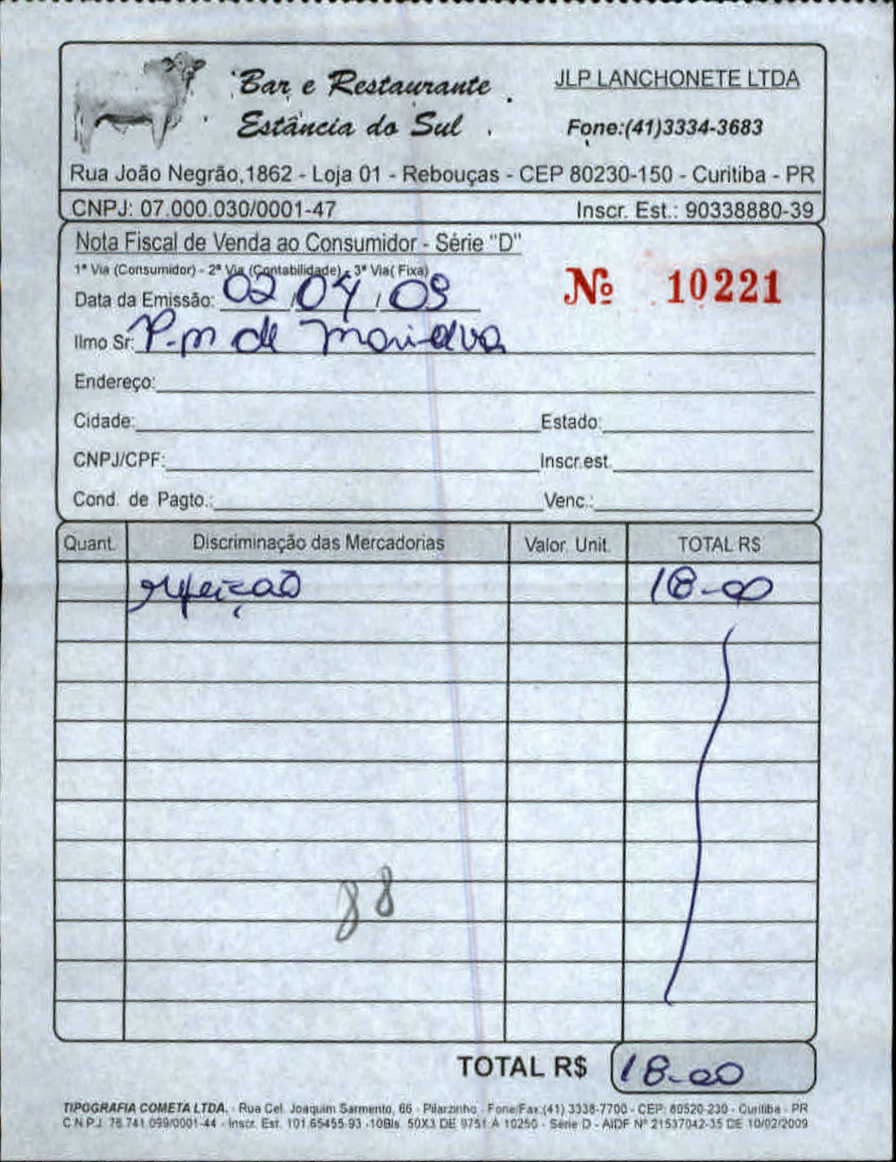 Bar e Restaurante
Estância do Sul
JLP LANCHONETE LTDA
Fone:(41)3334-3683
Rua João Negrão,1862 - Loja 01 - Rebouças - CEP 80230-150 - Curitiba - PR
CNPJ: 07.000.030/0001-47 Inscr. Est.: 90338880-39
Nota Fiscal de Venda ao Consumidor - Série "D"
1ª Via (Consumidor) - 2ª Via (Contabilidade) - 3ª Via( Fixa)
Nº 10221
Data da Emissão: 02/04/09
Ilmo Sr: P.m de Marialva
Endereço:
Cidade: Estado:
CNPJ/CPF: Inscr.est.
Cond. de Pagto.: Venc.:
Quant. Discriminação das Mercadorias Valor. Unit. TOTAL R$
refeição 18-00
88
TOTAL R$ 18-00
TIPOGRAFIA COMETA LTDA. - Rua Cel. Joaquim Sarmento, 66 - Pilarzinho - Fone/Fax:(41) 3338-7700 - CEP: 80520-230 - Curitiba - PR
C.N.P.J. 76.741.099/0001-44 - Inscr. Est. 101.65455-93 -10Bls. 50X3 DE 9751 A 10250 - Série D - AIDF Nº 21537042-35 DE 10/02/2009